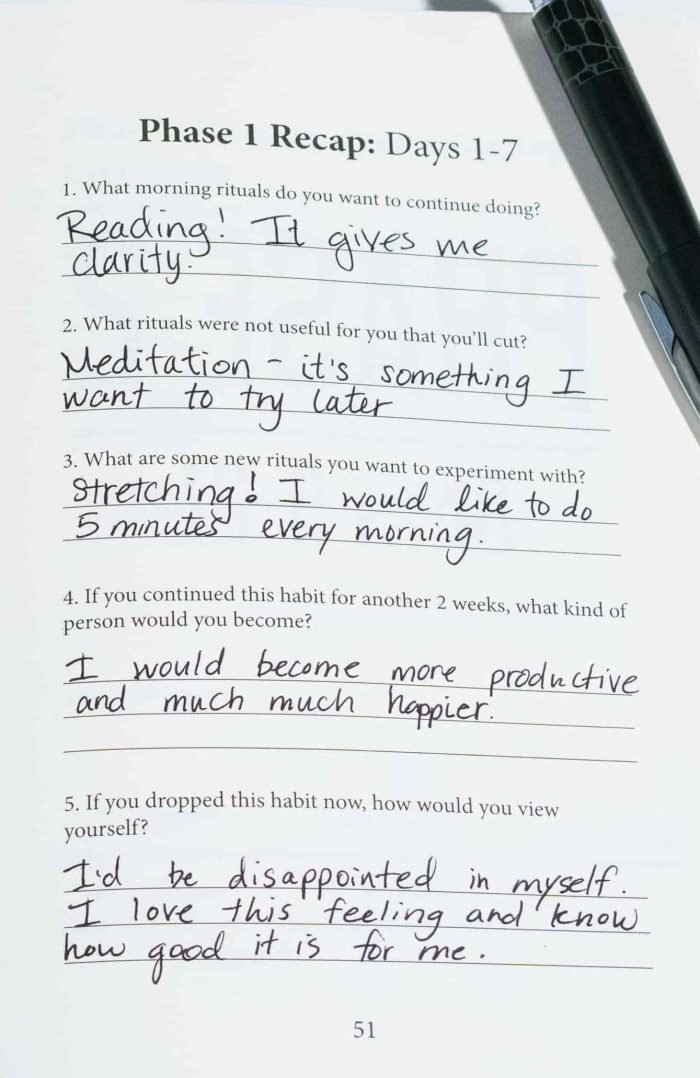 Phase 1 Recap: Days 1-7
1. What morning rituals do you want to continue doing?
Reading! It gives me
clarity.
2. What rituals were not useful for you that you'll cut?
Meditation - it's something I
want to try later
3. What are some new rituals you want to experiment with?
Stretching! I would like to do
5 minutes every morning.
4. If you continued this habit for another 2 weeks, what kind of
person would you become?
I would become more productive
and much much happier.
5. If you dropped this habit now, how would you view
yourself?
I'd be disappointed in myself.
I love this feeling and know
how good it is for me.
51